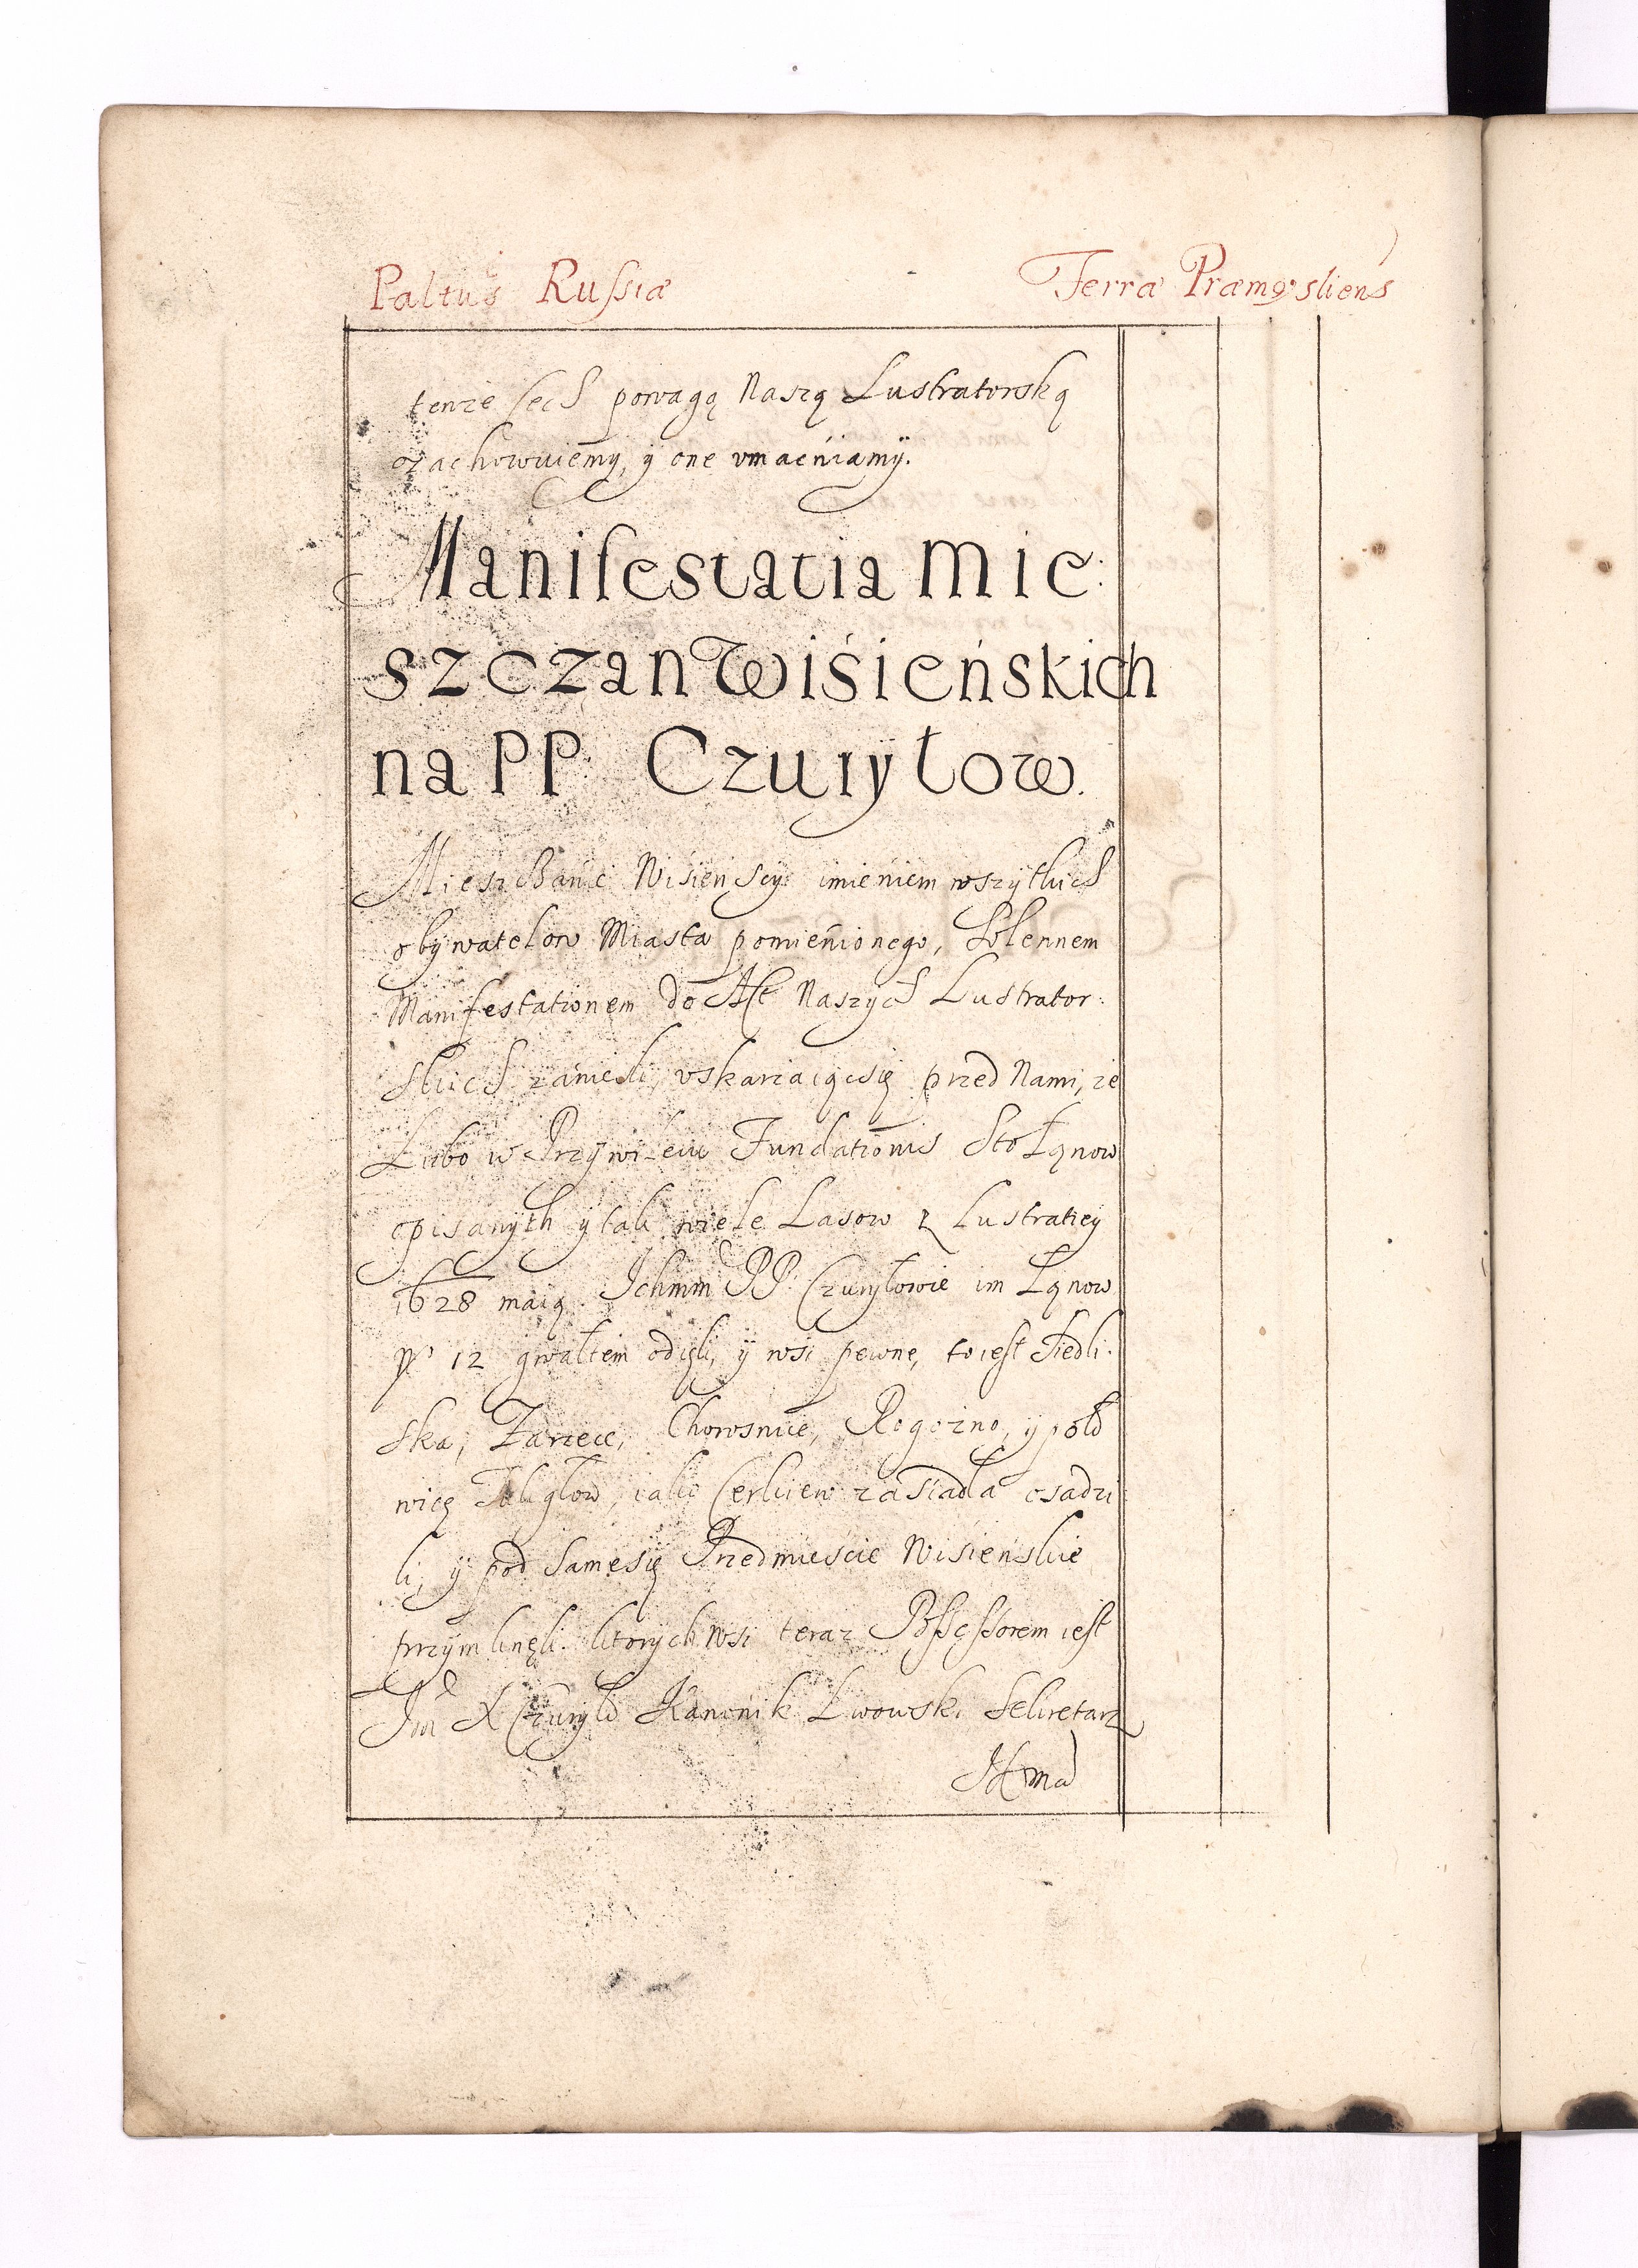 Paltus Russiæ Terra Præmysliens
tenże Cech powagą Naszą Lustratorską
zachowuiemy, y one vmacniamy.
Manifestatia Mie:
szczan Wisieńskich
na PP Czuryłow.
Mieszczanie Wisienscy imieniem wszytkich
obywatelow Miasta pomienionego, Solennem
Manifestationem do Akt Naszych Lustrator:
skich zaniesli, vskarzaiącsię przed Nami, ze
Lubo w Przywileiu Fundationis Sto Łąnow
opisanych y tak wiele Lasow z Lustratiey
1628 maią. Ichmm PP: Czuryłowie im Łąnow
12 gwałtem odięli, y wsi pewne, to iest Siedli:
ska, Zarzecę, Chorosnicę, Rogozno, y poło
wicę Tuligłow, iako Cerkiew zasiadła osadzi
li, y pod Samesię Przedmiescie Wisienskie
przymknęli. ktorych Wsi teraz Possessorem iest
Im X Czuryło Kanonik Lwowski Sekretarz